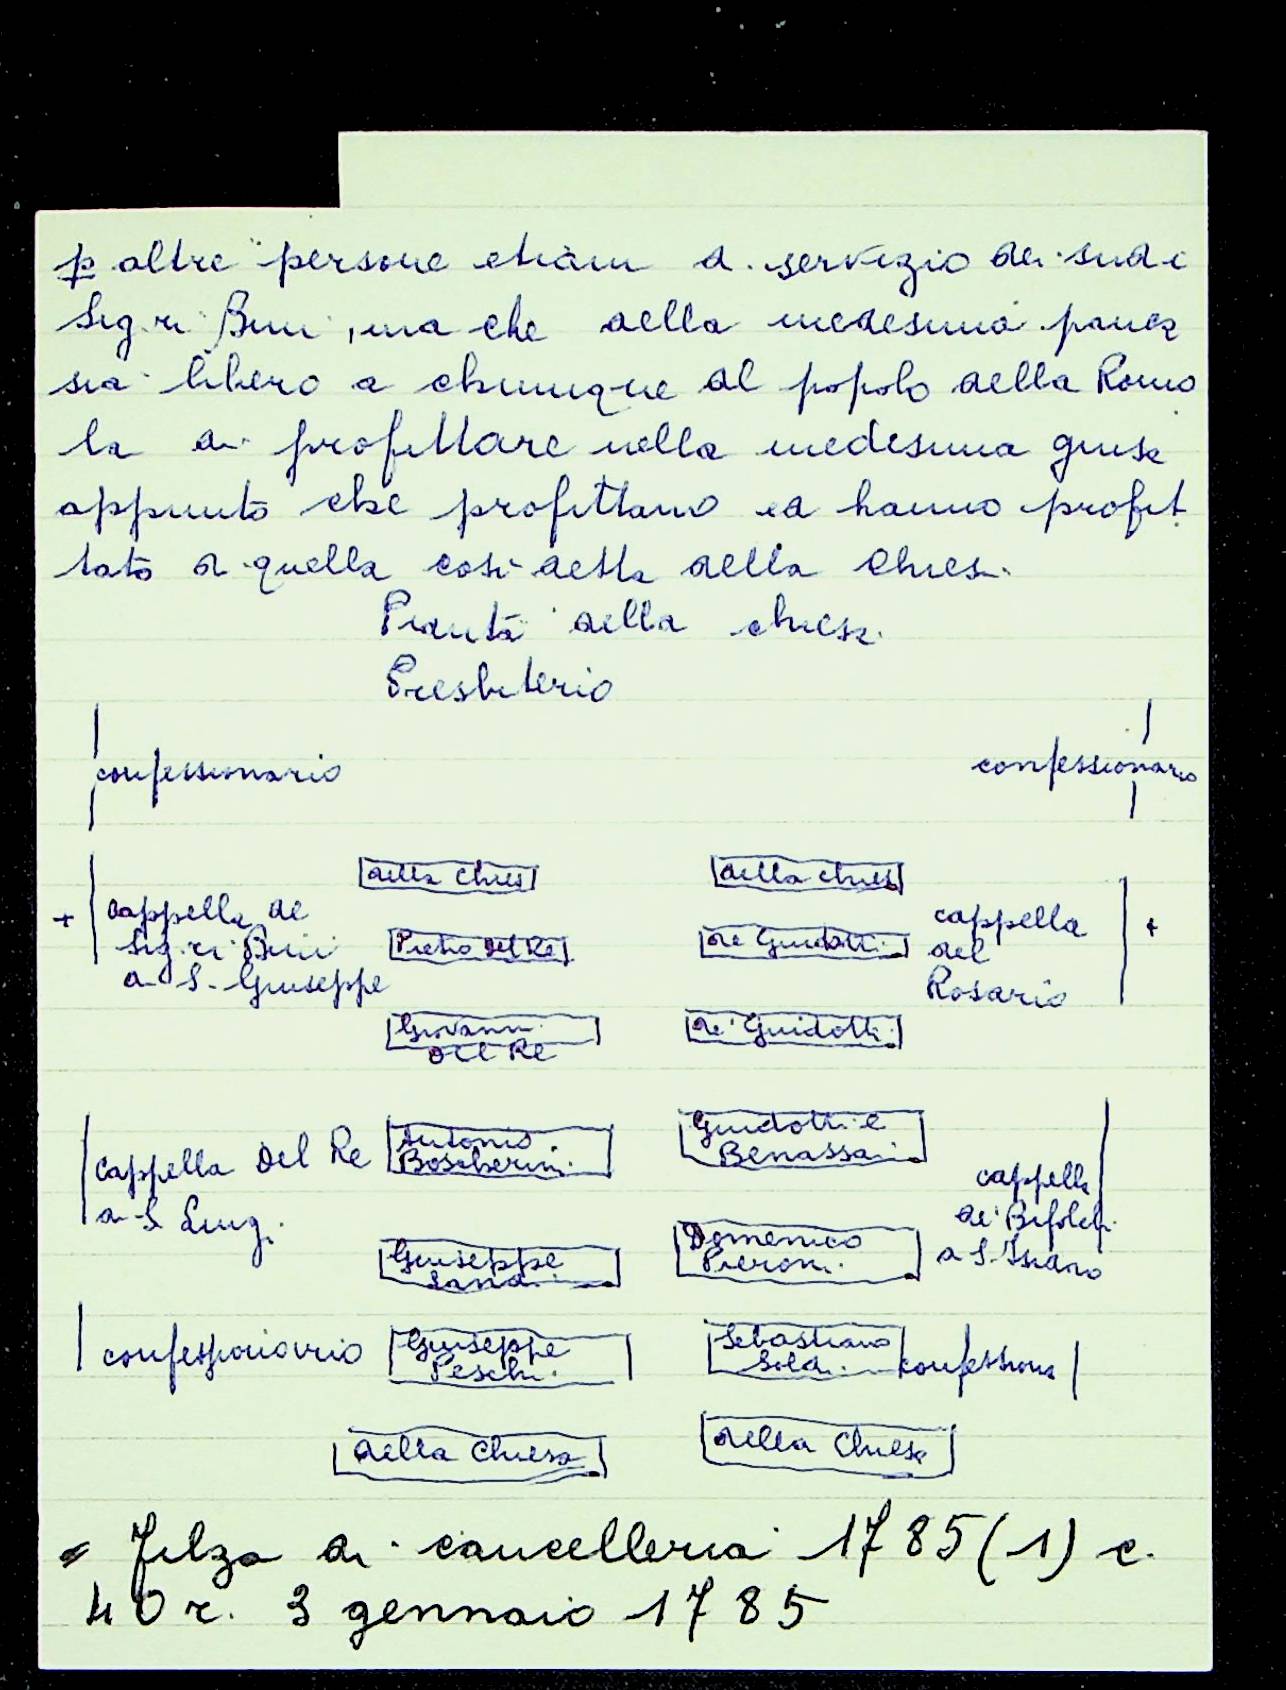 p altre persone etiam di servizio dei sud.i
Sig.ri Bini, ma che della medesima panca
sia libero a chiunque del popolo della Romo
la di profittare nella medesima guisa
appunto che profittano ed hanno profit
tato di quella così detta della Chiesa.
Pianta della chiesa
Presbiterio
confessionario confessionario
della Chiesa della chiesa
+ cappella de Sig.ri Bini a S. Giuseppe
Pietro Del Re de Guidotti
cappella del Rosario +
Giovanni Del Re de' Guidotti
cappella Del Re a S. Luigi
Antonio Boscherini Guidotti e Benassai
cappella de' Bifolchi a S. Isidoro
Giuseppe Domenico Pieroni
confessionario Giuseppe Peschi Sebastiano Soldi confessiona
della Chiesa della Chiesa
= Filza di cancelleria 1785 (1) c.
40 r. 3 gennaio 1785